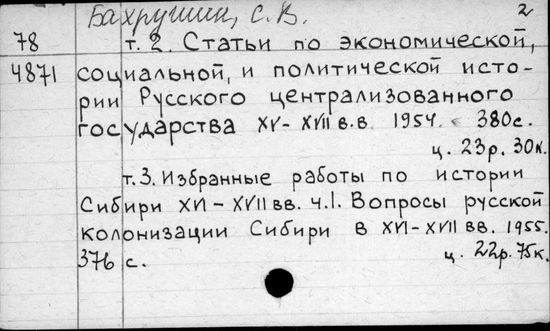 Бахрушин, С.В. 2
78 т. 2. Статьи по экономической,
4871 социальной, и политической исто-
рии Русского централизованного
государства XV- XVII в.в. 1954. 380с.
ц. 23р. 30к.
т.3. Избранные работы по истории
Сибири XVI - XVII вв. ч.1. Вопросы русской
колонизации Сибири в XVI - XVII вв. 1955.
376 с. ц. 22р. 75к.